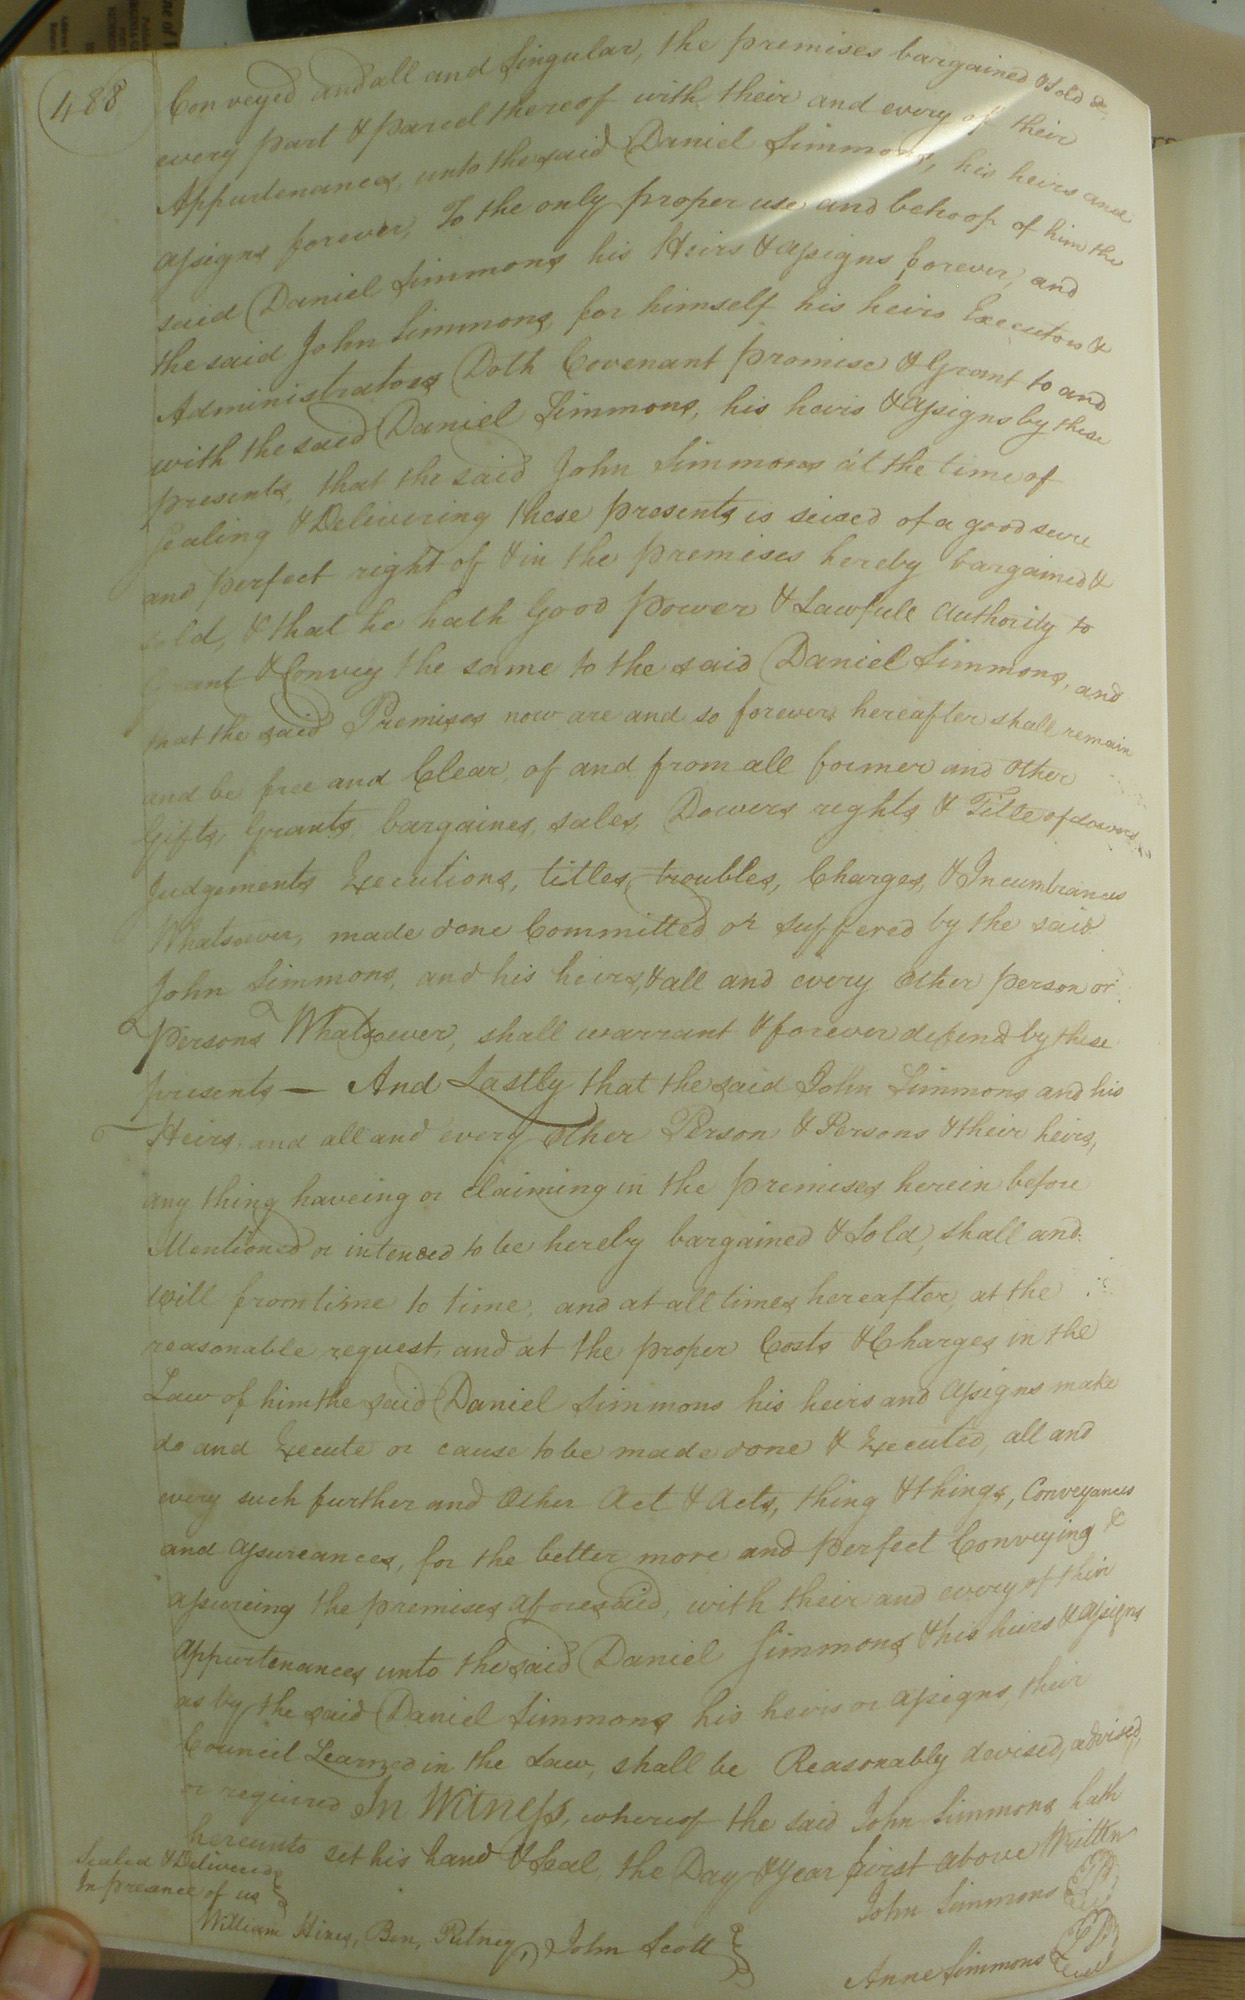 488
Conveyed and all and Singular, the premises bargained & Sold &
every part & parcel thereof with their and every of their
Appurtenances, unto the said Daniel Simmons, his heirs and
assigns forever, To the only proper use and behoof of him the
said Daniel Simmons his Heirs & assigns forever, and
the said John Simmons for himself his heirs Executors &
Administrators Doth Covenant promise & Grant to and
with the said Daniel Simmons, his heirs & assigns by these
presents, that the said John Simmons at the time of
Sealing & Delivering these presents is seised of a good sure
and perfect right of & in the premises hereby bargained &
Sold, & that he hath Good power & Lawfull authority to
Grant & Convey the same to the said Daniel Simmons, and
that the said Premises now are and so forever hereafter shall remain
and be free and Clear, of and from all former and other
Gifts, Grants, bargaines, sales, Dowers rights & Title of dowers,
Judgements Executions, titles, troubles, Charges, & Incumbrances
Whatsoever, made done Committed or suffered by the said
John Simmons, and his heirs, & all and every other person or
persons Whatsoever, shall warrant & forever defend by these
presents — And Lastly that the said John Simmons and his
Heirs and all and every Other Person & Persons & their heirs,
any thing haveing or claiming in the premises herein before
Mentioned or intended to be hereby bargained & Sold, shall and
will from time to time, and at all times hereafter, at the
reasonable request, and at the proper Costs & Charges in the
Law of him the said Daniel Simmons his heirs and assigns make
do and Execute or cause to be made done & Executed, all and
every such further and other Act & Acts, thing & things, Conveyances
and assureances, for the better more and perfect Conveying &
assureing the premises aforesaid, with their and every of their
appurtenances unto the said Daniel Simmons & his heirs & assigns
as by the said Daniel Simmons his heirs or assigns, their
Council Learned in the Law, shall be Reasonably devised, advised,
or required In Witness, whereof the said John Simmons hath
hereunto set his hand & Seal, the Day & year first above Written
Sealed & Delivered
In presance of us
John Simmons
William Hines, Ben, Putney, John Scott
Anne Simmons